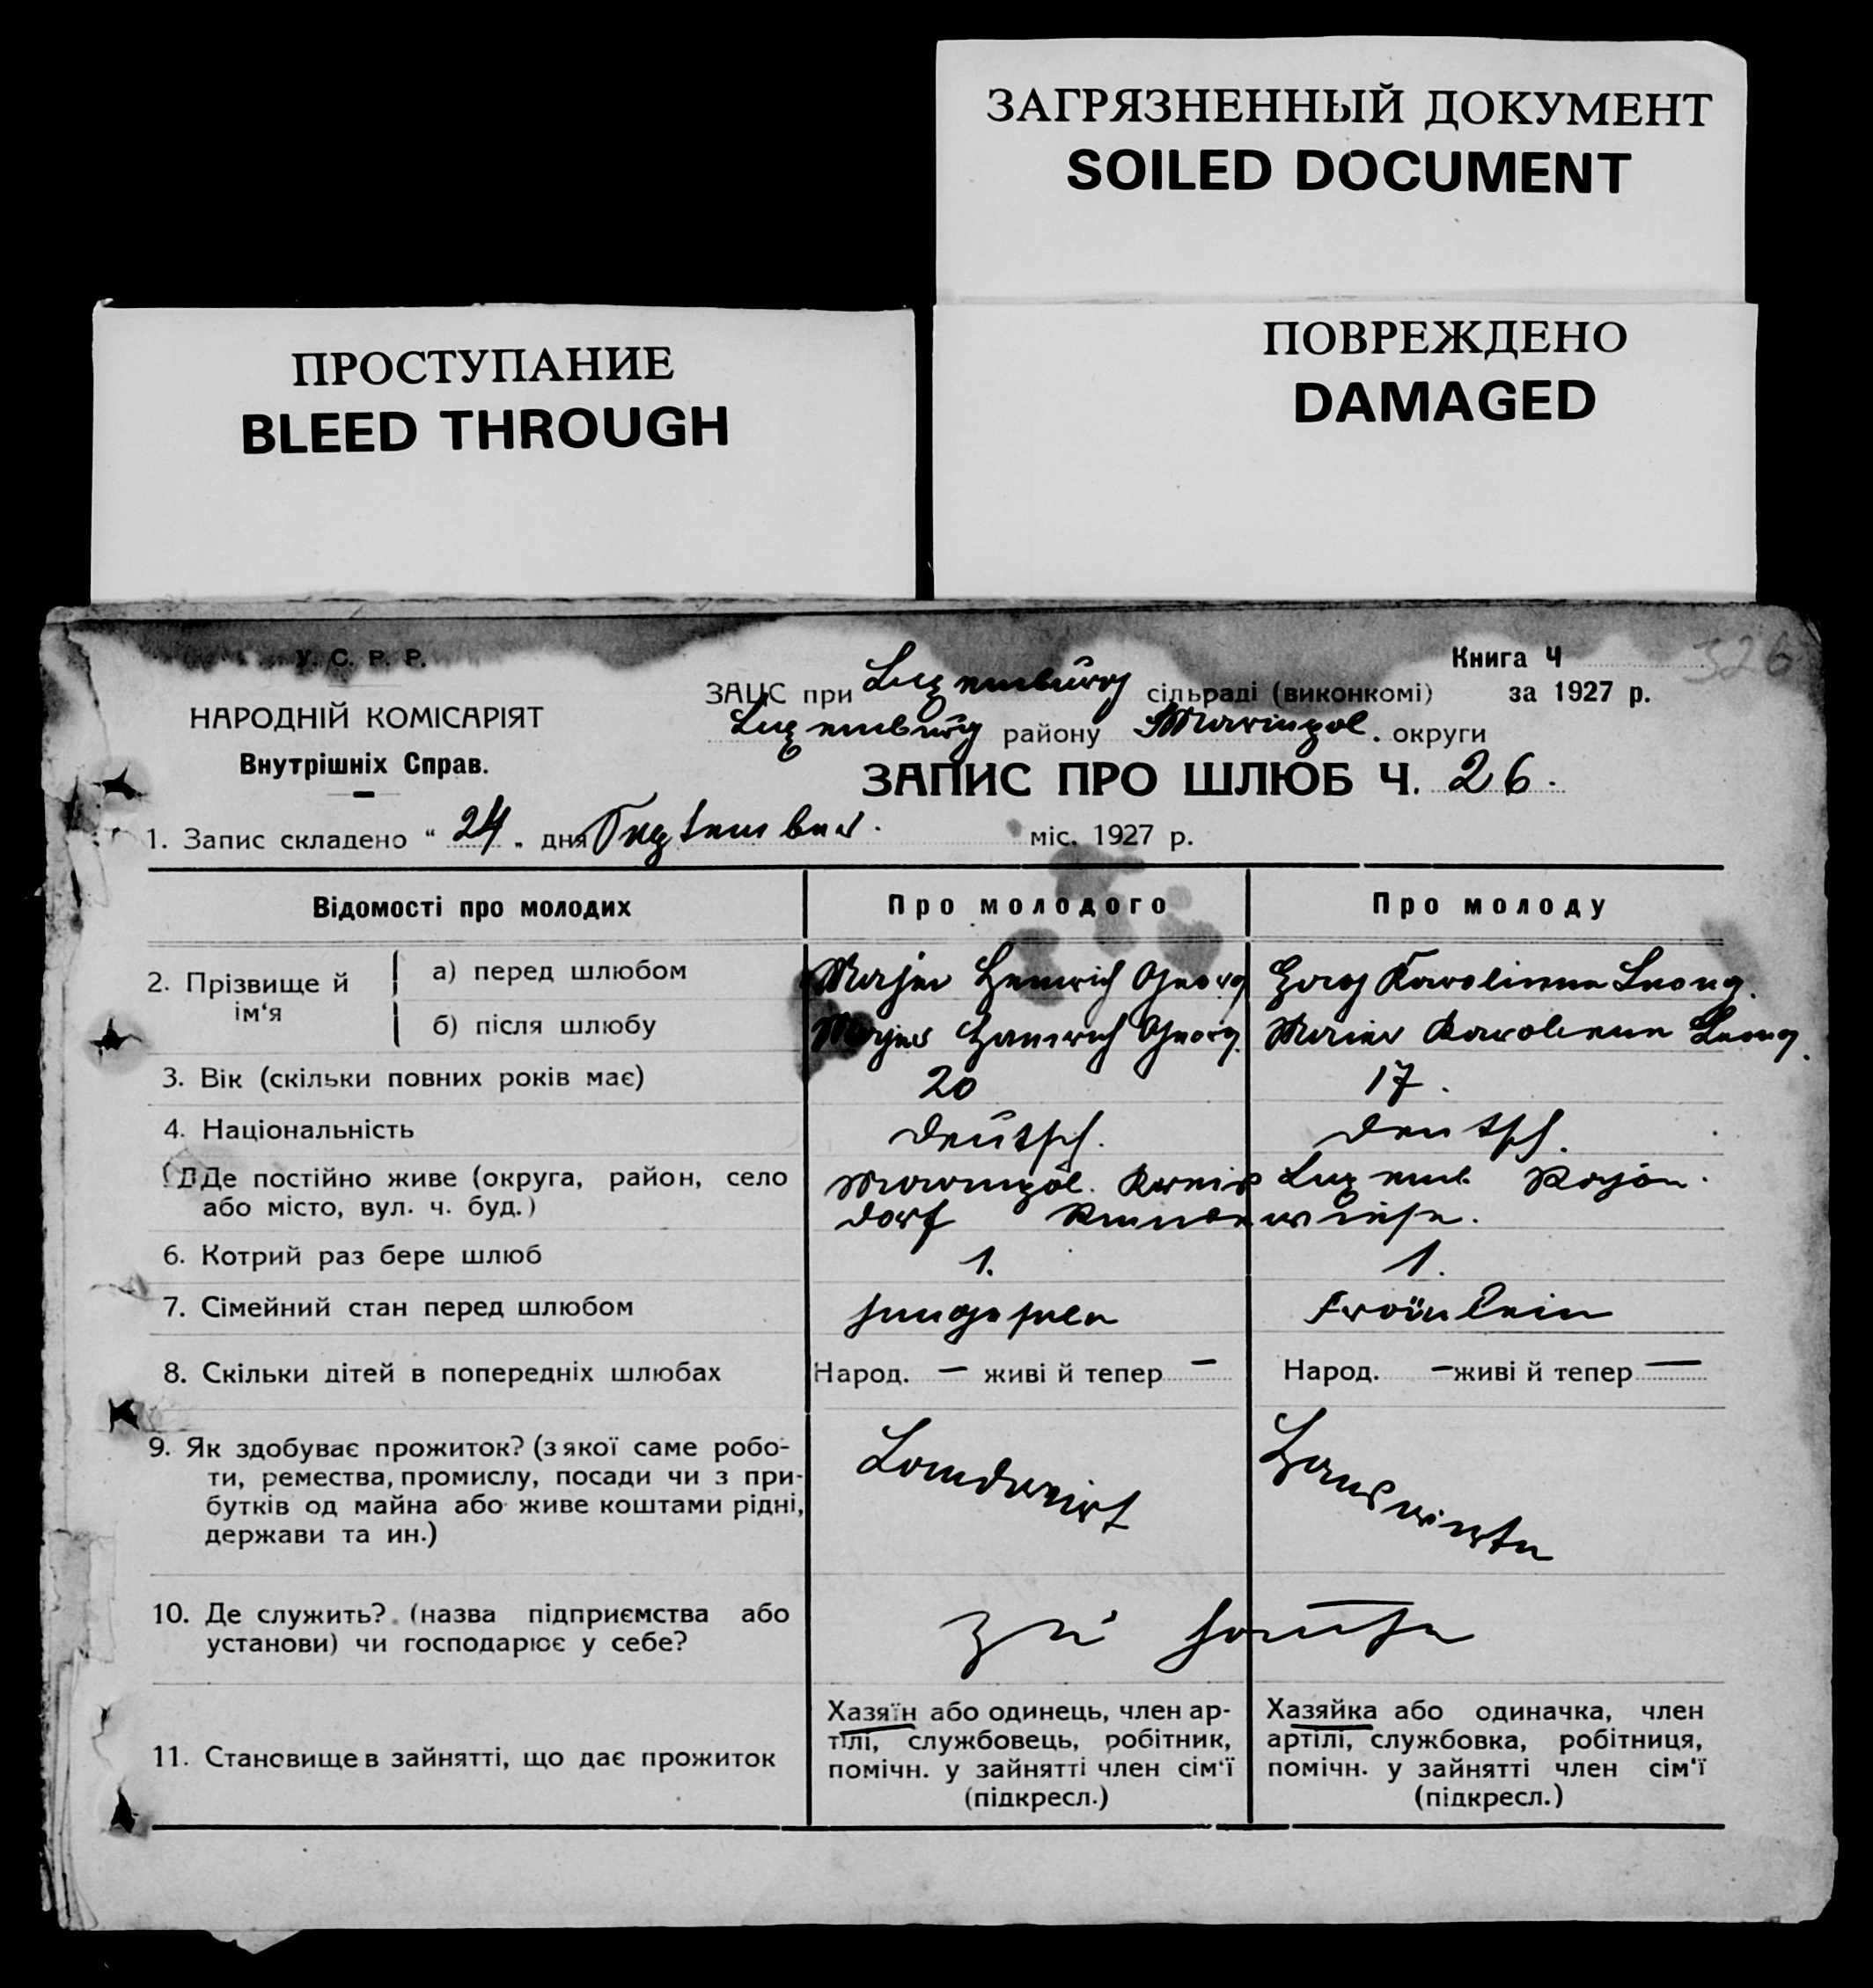 ЗАГРЯЗНЕННЫЙ ДОКУМЕНТ
SOILED DOCUMENT
ПРОСТУПАНИЕ
BLEED THROUGH
ПОВРЕЖДЕНО
DAMAGED
У. С. Р. Р.
НАРОДНІЙ КОМІСАРІЯТ
Внутрішніх Справ.
Книга Ч 326
ЗАЦС при Luxemburg сільраді (виконкомі) за 1927 р.
Luxemburg району Mariupol. округи
ЗАПИС ПРО ШЛЮБ Ч. 26.
1. Запис складено " 24 " дня September. міс. 1927 р.
Відомості про молодих Про молодого Про молоду
2. Прізвище й ім'я
а) перед шлюбом Majer Heinrich Georg Karolinna
б) після шлюбу Majer Heinrich Georg. Maier
3. Вік (скільки повних років має) 20 17.
4. Національність Deutsch. Deutsch.
Де постійно живе (округа, район, село Mariupol. Kreis Luxemb. Rajon.
або місто, вул. ч. буд.) Dorf
6. Котрий раз бере шлюб 1. 1.
7. Сімейний стан перед шлюбом Jungeselle Fräulein
8. Скільки дітей в попередніх шлюбах Народ. — живі й тепер — Народ. — живі й тепер —
9. Як здобуває прожиток? (з якої саме робо-
ти, ремества, промислу, посади чи з при-
бутків од майна або живе коштами рідні,
держави та ин.)
Landwirt Hauswirtin
10. Де служить? (назва підприємства або
установи) чи господарює у себе?
zu Hause
11. Становище в зайнятті, що дає прожиток
Хазяїн або одинець, член ар-
тілі, службовець, робітник,
помічн. у зайнятті член сім'ї
(підкресл.)
Хазяйка або одиначка, член
артілі, службовка, робітниця,
помічн. у зайнятті член сім'ї
(підкресл.)